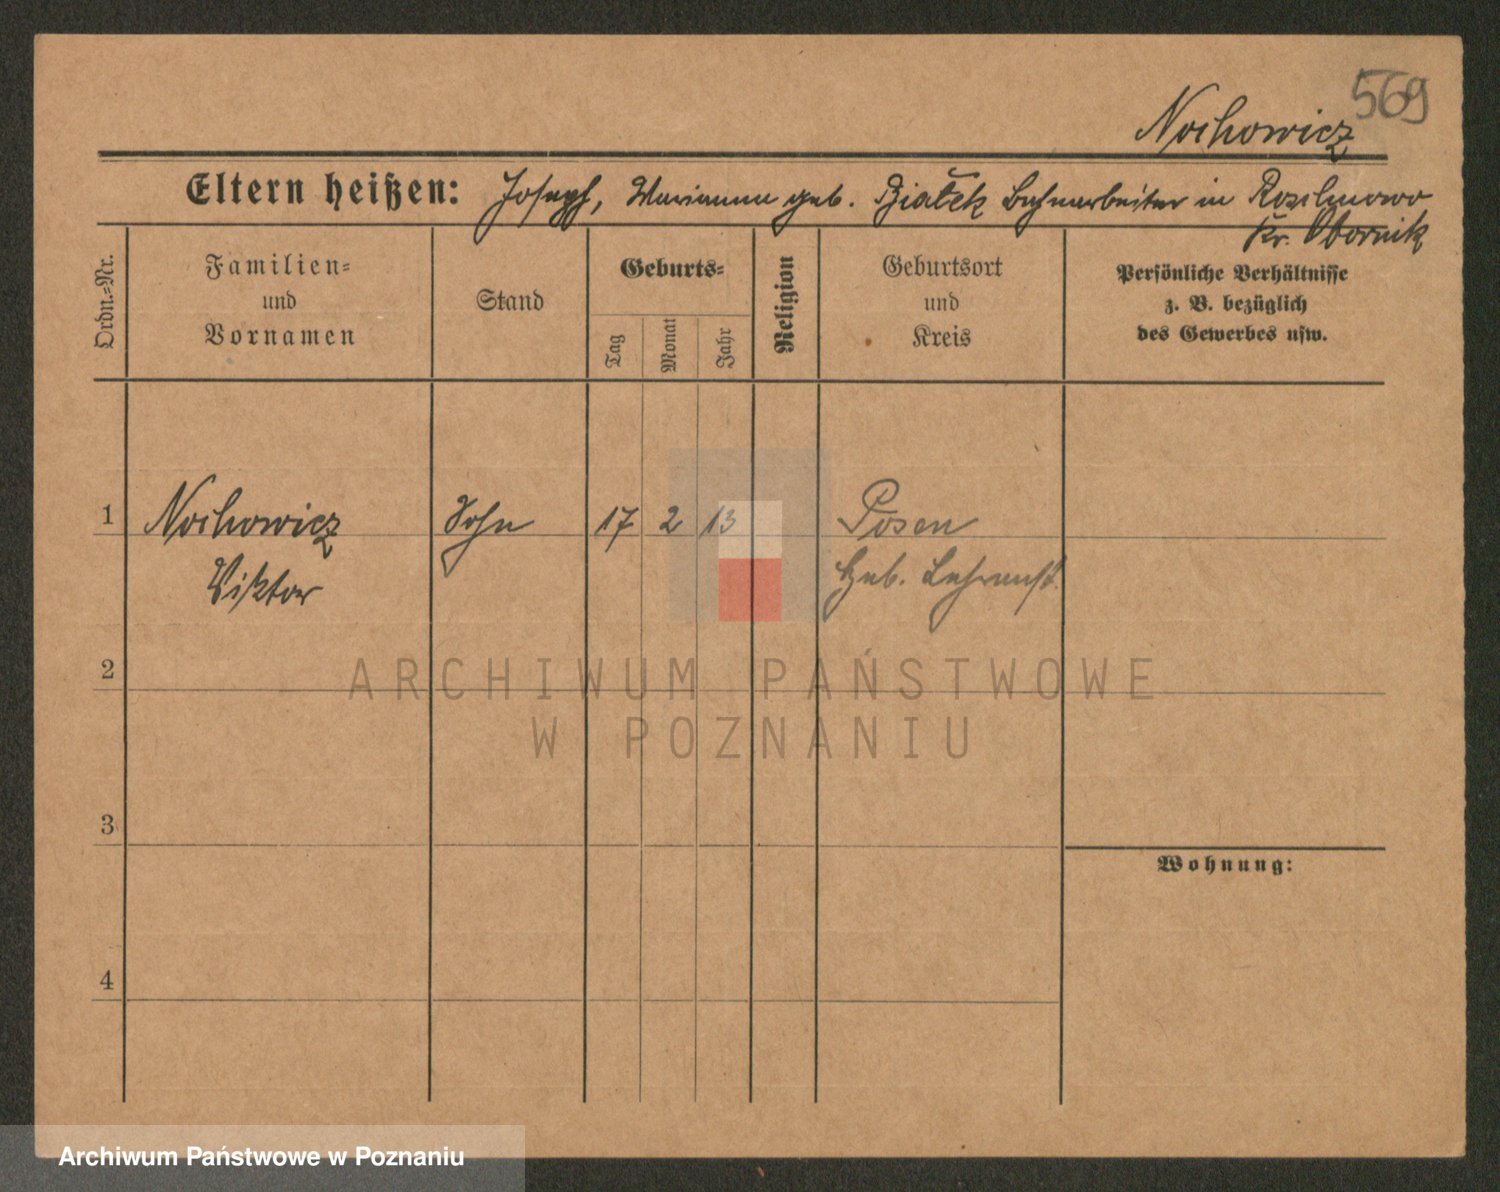 569
Nochowicz
Eltern heißen: Joseph, Marianna geb. Bialek Bahnarbeiter in
Kr. Obornik
Ordn.=Nr.
Familien=
und
Vornamen
Stand
Geburts=
Tag
Monat
Jahr
Religion
Geburtsort
und
Kreis
Persönliche Verhältnisse
z. B. bezüglich
des Gewerbes usw.
1 Nochowicz Sohn 17 2 13 Posen
Viktor Heb. Lehranst.
2
ARCHIWUM PAŃSTWOWE
W POZNANIU
3
Wohnung:
4
Archiwum Państwowe w Poznaniu